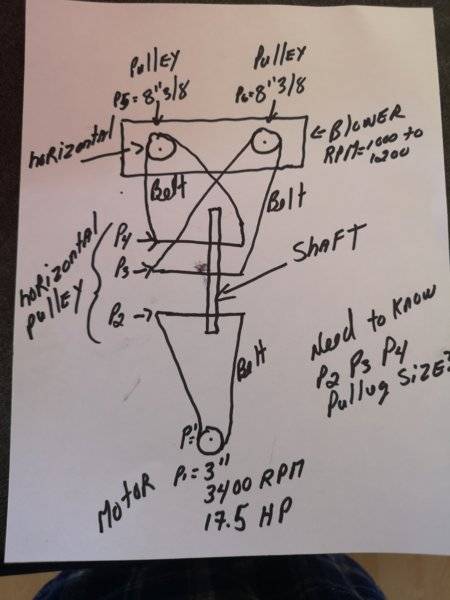 Pulley
P5=8"3/8
Pulley
P6=8"3/8
horizontal
←BLOWER
RPM=1000 to
1200
Belt
Belt
horizontal
pulley
P4
P3
P2→
SHAFT
Belt
Need to know
P2 P3 P4
Pullug Size?
P1
MOTOR
P1=3"
3400 RPM
17.5 HP